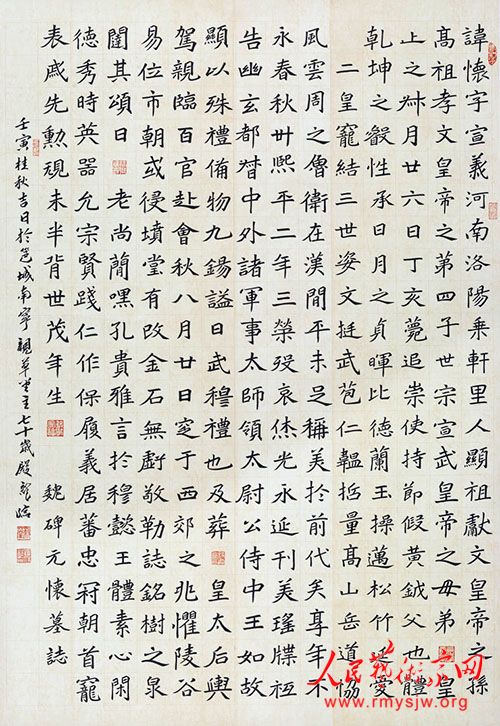 諱懷字宣義河南洛陽乘軒里人顯祖獻文皇帝之孫
高祖孝文皇帝之第四子世宗宣武皇帝之母弟皇
上之叔月廿六日丁亥薨追崇使持節假黃鉞父也體
乾坤之叡性承日月之貞暉比德蘭玉操邁松竹延愛
二皇寵結三世姿文挺武苞仁韞括量高山岳道協
風雲周之魯衛在漢閒平未足稱美於前代矣享年不
永春秋卅熙平二年三榮歿哀烋光永延刊美瑤牒祗
告幽玄都督中外諸軍事太師領太尉公侍中王如故
顯以殊禮備物九錫謚曰武穆禮也及葬 皇太后輿
駕親臨百官赴會秋八月廿日窆于西郊之兆懼陵谷
易位市朝或侵墳堂有改金石無虧敬勒誌銘樹之泉
闉其頌曰 老尚蕳嘿孔貴雅言於穆懿王體素心閑
德秀時英器允宗賢踐仁作保履義居蕃忠冠朝首寵
表戚先勳覢未半背世茂年生 魏碑元懷墓誌
壬寅桂秋吉日於邕城南寧觀草堂主七十歲殷臨
人民藝術家网
www.rmysjw.org